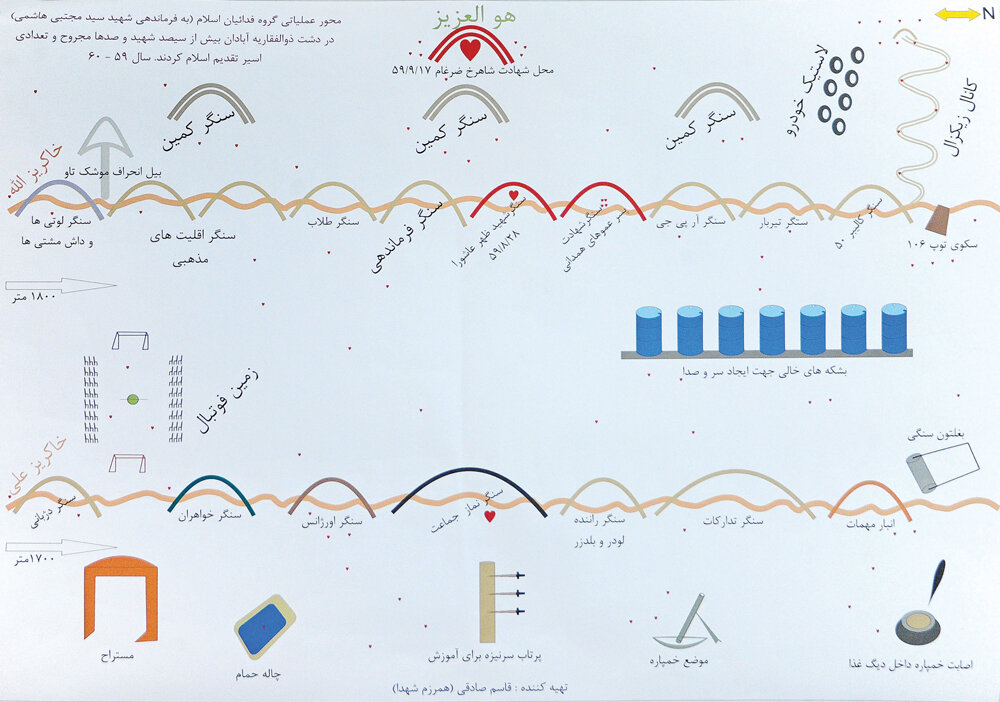 هو العزیز
N
محور عملیاتی گروه فدائیان اسلام (به فرماندهی شهید سید مجتبی هاشمی)
در دشت ذوالفقاریه آبادان بیش از سیصد شهید و صدها مجروح و تعدادی
اسیر تقدیم اسلام کردند. سال ۵۹ - ۶۰
محل شهادت شاهرخ ضرغام ۵۹/۹/۱۷
لاستیک خودرو
کانال زیگزال
سنگر کمین
سنگر کمین
سنگر کمین
خاکریز الله
بیل انحراف موشک تاو
سکوی توپ ۱۰۶
سنگر کالیبر ۵۰
سنگر تیربار
سنگر آر پی جی
سنگر شهادت
پسر عموهای همدانی
سنگر شهید ظهر عاشورا
۵۹/۸/۲۸
سنگر فرماندهی
سنگر طلاب
سنگر اقلیت های
مذهبی
سنگر لوتی ها
و داش مشتی ها
۱۸۰۰ متر
بشکه های خالی جهت ایجاد سر و صدا
زمین فوتبال
خاکریز علی
بغلتون سنگی
انبار مهمات
سنگر تدارکات
سنگر راننده
لودر و بلدزر
سنگر نماز جماعت
سنگر اورژانس
سنگر خواهران
سنگر دژبانی
۱۷۰۰متر
اصابت خمپاره داخل دیگ غذا
موضع خمپاره
پرتاب سرنیزه برای آموزش
چاله حمام
مستراح
تهیه کننده : قاسم صادقی (همرزم شهدا)